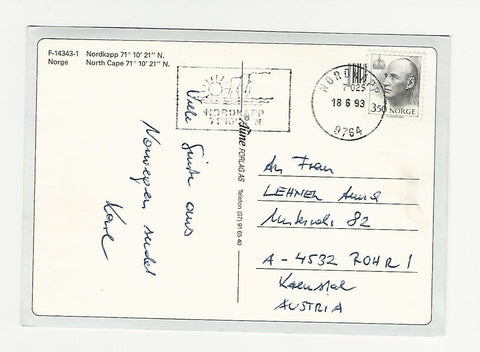 F-14343-1 Nordkapp 71° 10' 21" N.
Norge North Cape 71° 10' 21" N.
NORDKAPP
71° 10' 21" N
NORDKAPP
18 6 93
9764
350 NORGE
Viele Grüße aus
Norwegen sendet
Karl
Aune FORLAG AS Telefon (07) 91 65 40
An Frau
LEHNER Anna
82
A - 4532 ROHR I
Kremstal
AUSTRIA